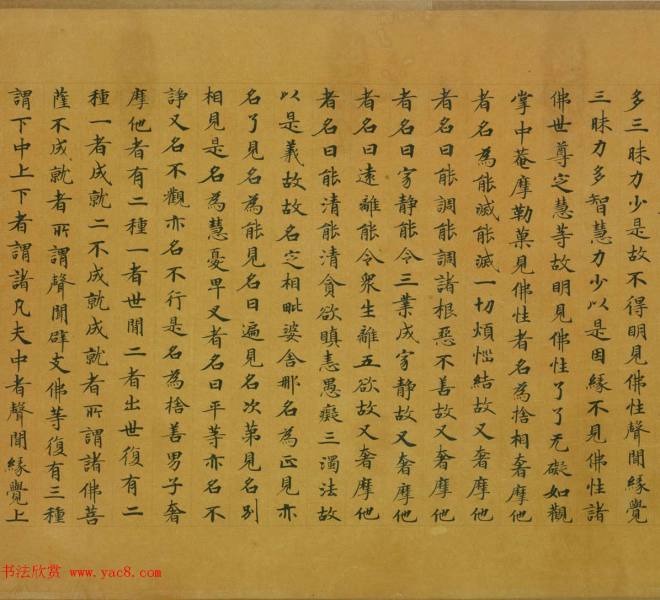 多三昧力少是故不得明見佛性聲聞緣覺
三昧力多智慧力少以是因緣不見佛性諸
佛世尊定慧等故明見佛性了了无礙如觀
掌中菴摩勒菓見佛性者名為捨相奢摩他
者名為能滅能滅一切煩惱結故又奢摩他
者名曰能調能調諸根惡不善故又奢摩他
者名曰寂静能令三業成寂静故又奢摩他
者名曰遠離能令衆生離五欲故又奢摩他
者名曰能清能清貪欲瞋恚愚癡三濁法故
以是義故故名定相毗婆舍那名為正見亦
名了見名為能見名曰遍見名次第見名別
相見是名為慧憂畢又者名曰平等亦名不
諍又名不觀亦名不行是名為捨善男子奢
摩他者有二種一者世間二者出世復有二
種一者成就二不成就成就者所謂諸佛菩
薩不成就者所謂聲聞辟支佛等復有三種
謂下中上下者謂諸凡夫中者聲聞緣覺上
书法欣赏 www.yac8.com